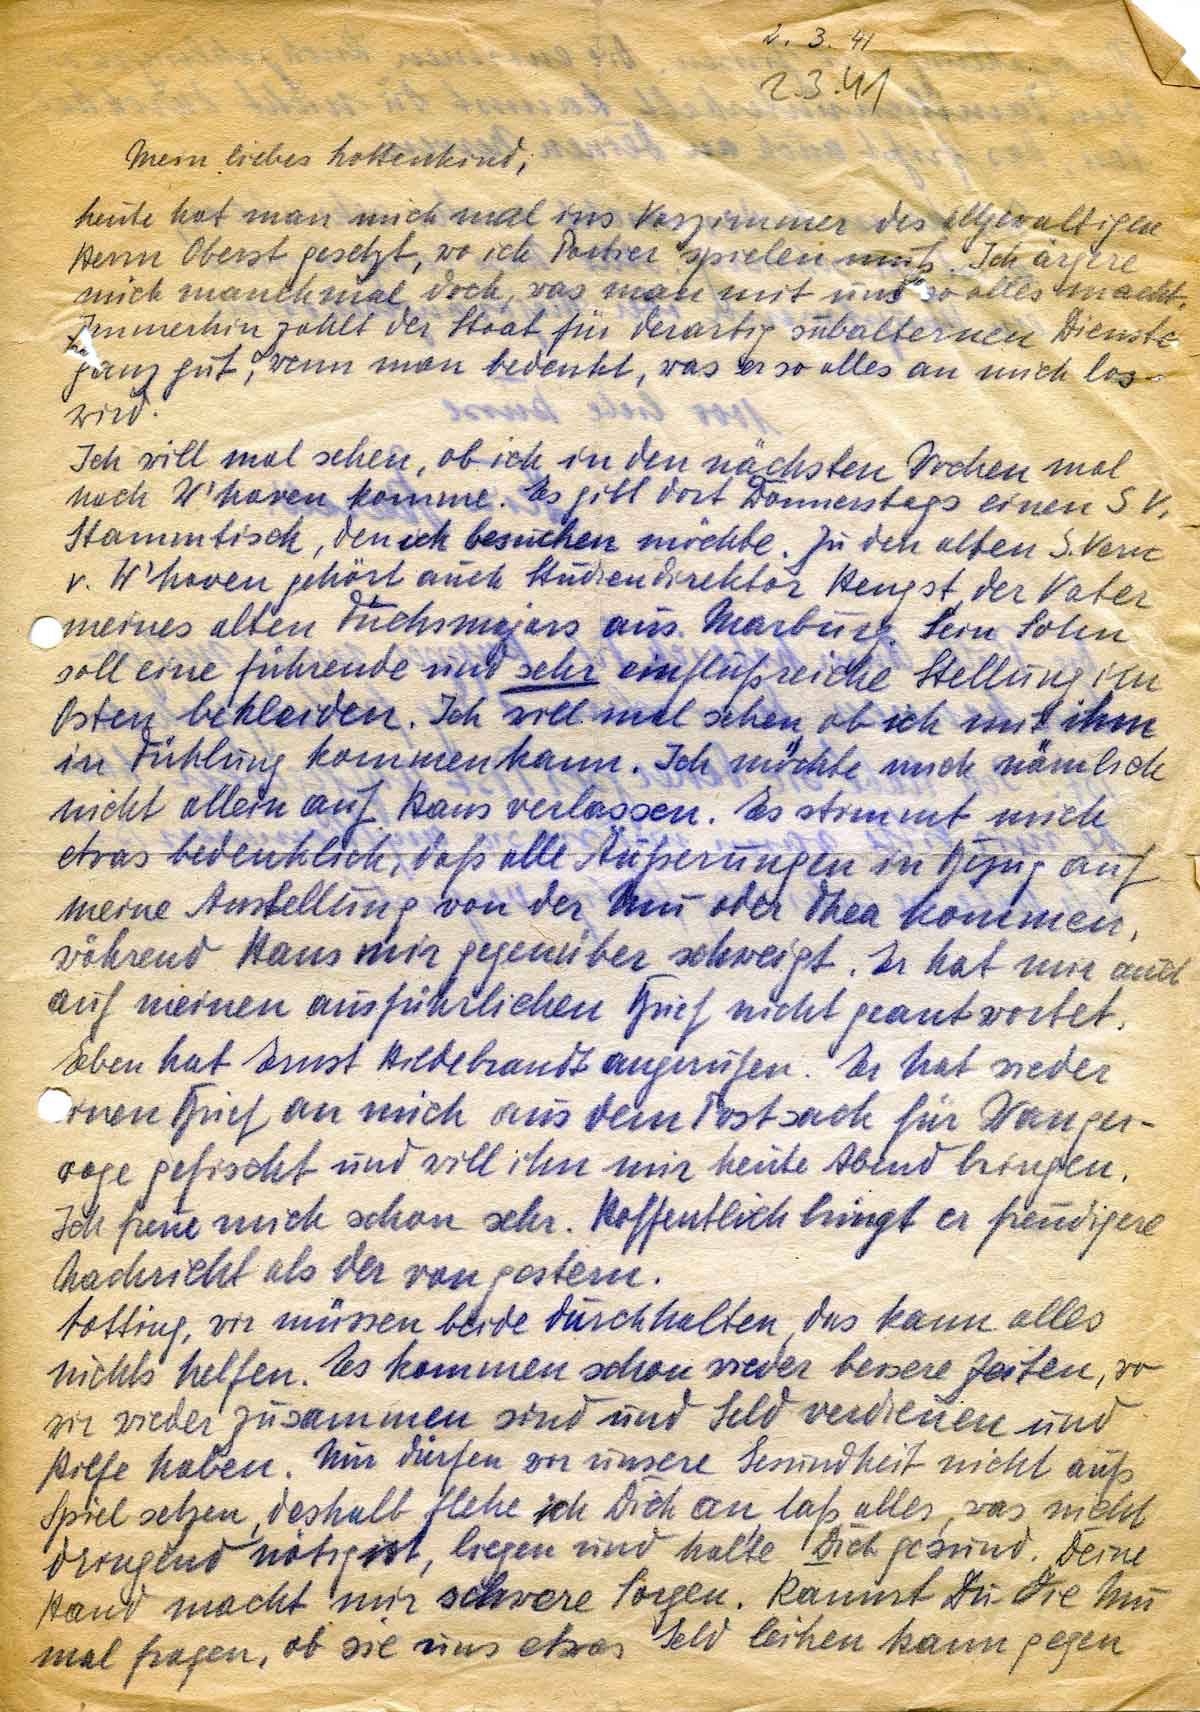 2. 3. 41
2.3.41
Mein liebes Lottenkind,
heute hat man mich mal ins Vorzimmer des allgewaltigen
Herrn Oberst gesetzt, wo ich Portier spielen muß. Ich ärgere
mich manchmal doch, was man mit uns so alles macht.
Immerhin zahlt der Staat für derartig subalternen Dienste
ganz gut, wenn man bedenkt, was er so alles an mich los-
wird.
Ich will mal sehen, ob ich in den nächsten Wochen mal
nach W'haven komme. Es gibt dort Donnerstags einen S.V.
Stammtisch, den ich besuchen möchte. Zu den alten S.Vern
v. W'haven gehört auch Studiendirektor Hengst, der Vater
meines alten Fuchsmajors aus Marburg. Sein Sohn
soll eine führende und sehr einflußreiche Stellung im
Osten bekleiden. Ich will mal sehen, ob ich mit ihm
in Fühlung kommen kann. Ich möchte mich nämlich
nicht allein auf Hans verlassen. Es stimmt mich
etwas bedenklich, daß alle Äußerungen in Bezug auf
meine Anstellung von der Mu oder Thea kommen,
während Hans mir gegenüber schweigt. Er hat mir auch
auf meinen ausführlichen Brief nicht geantwortet.
Eben hat Ernst Hildebrandt angerufen. Er hat wieder
einen Brief an mich aus dem Postsack für Wanger-
oge gefischt und will ihn mir heute Abend bringen.
Ich freue mich schon sehr. Hoffentlich bringt er freudigere
Nachricht als der von gestern.
Lotting, wir müssen beide durchhalten, das kann alles
nichts helfen. Es kommen schon wieder bessere Zeiten, wo
wir wieder zusammen sind und Geld verdienen und
Hilfe haben. Nur dürfen wir unsere Gesundheit nicht aufs
Spiel setzen, deshalb flehe ich Dich an, laß alles, was nicht
dringend nötig ist, liegen und halte Dich gesund. Deine
Hand macht mir schwere Sorgen. Kannst Du die Mu
mal fragen, ob sie uns etwas Geld leihen kann gegen